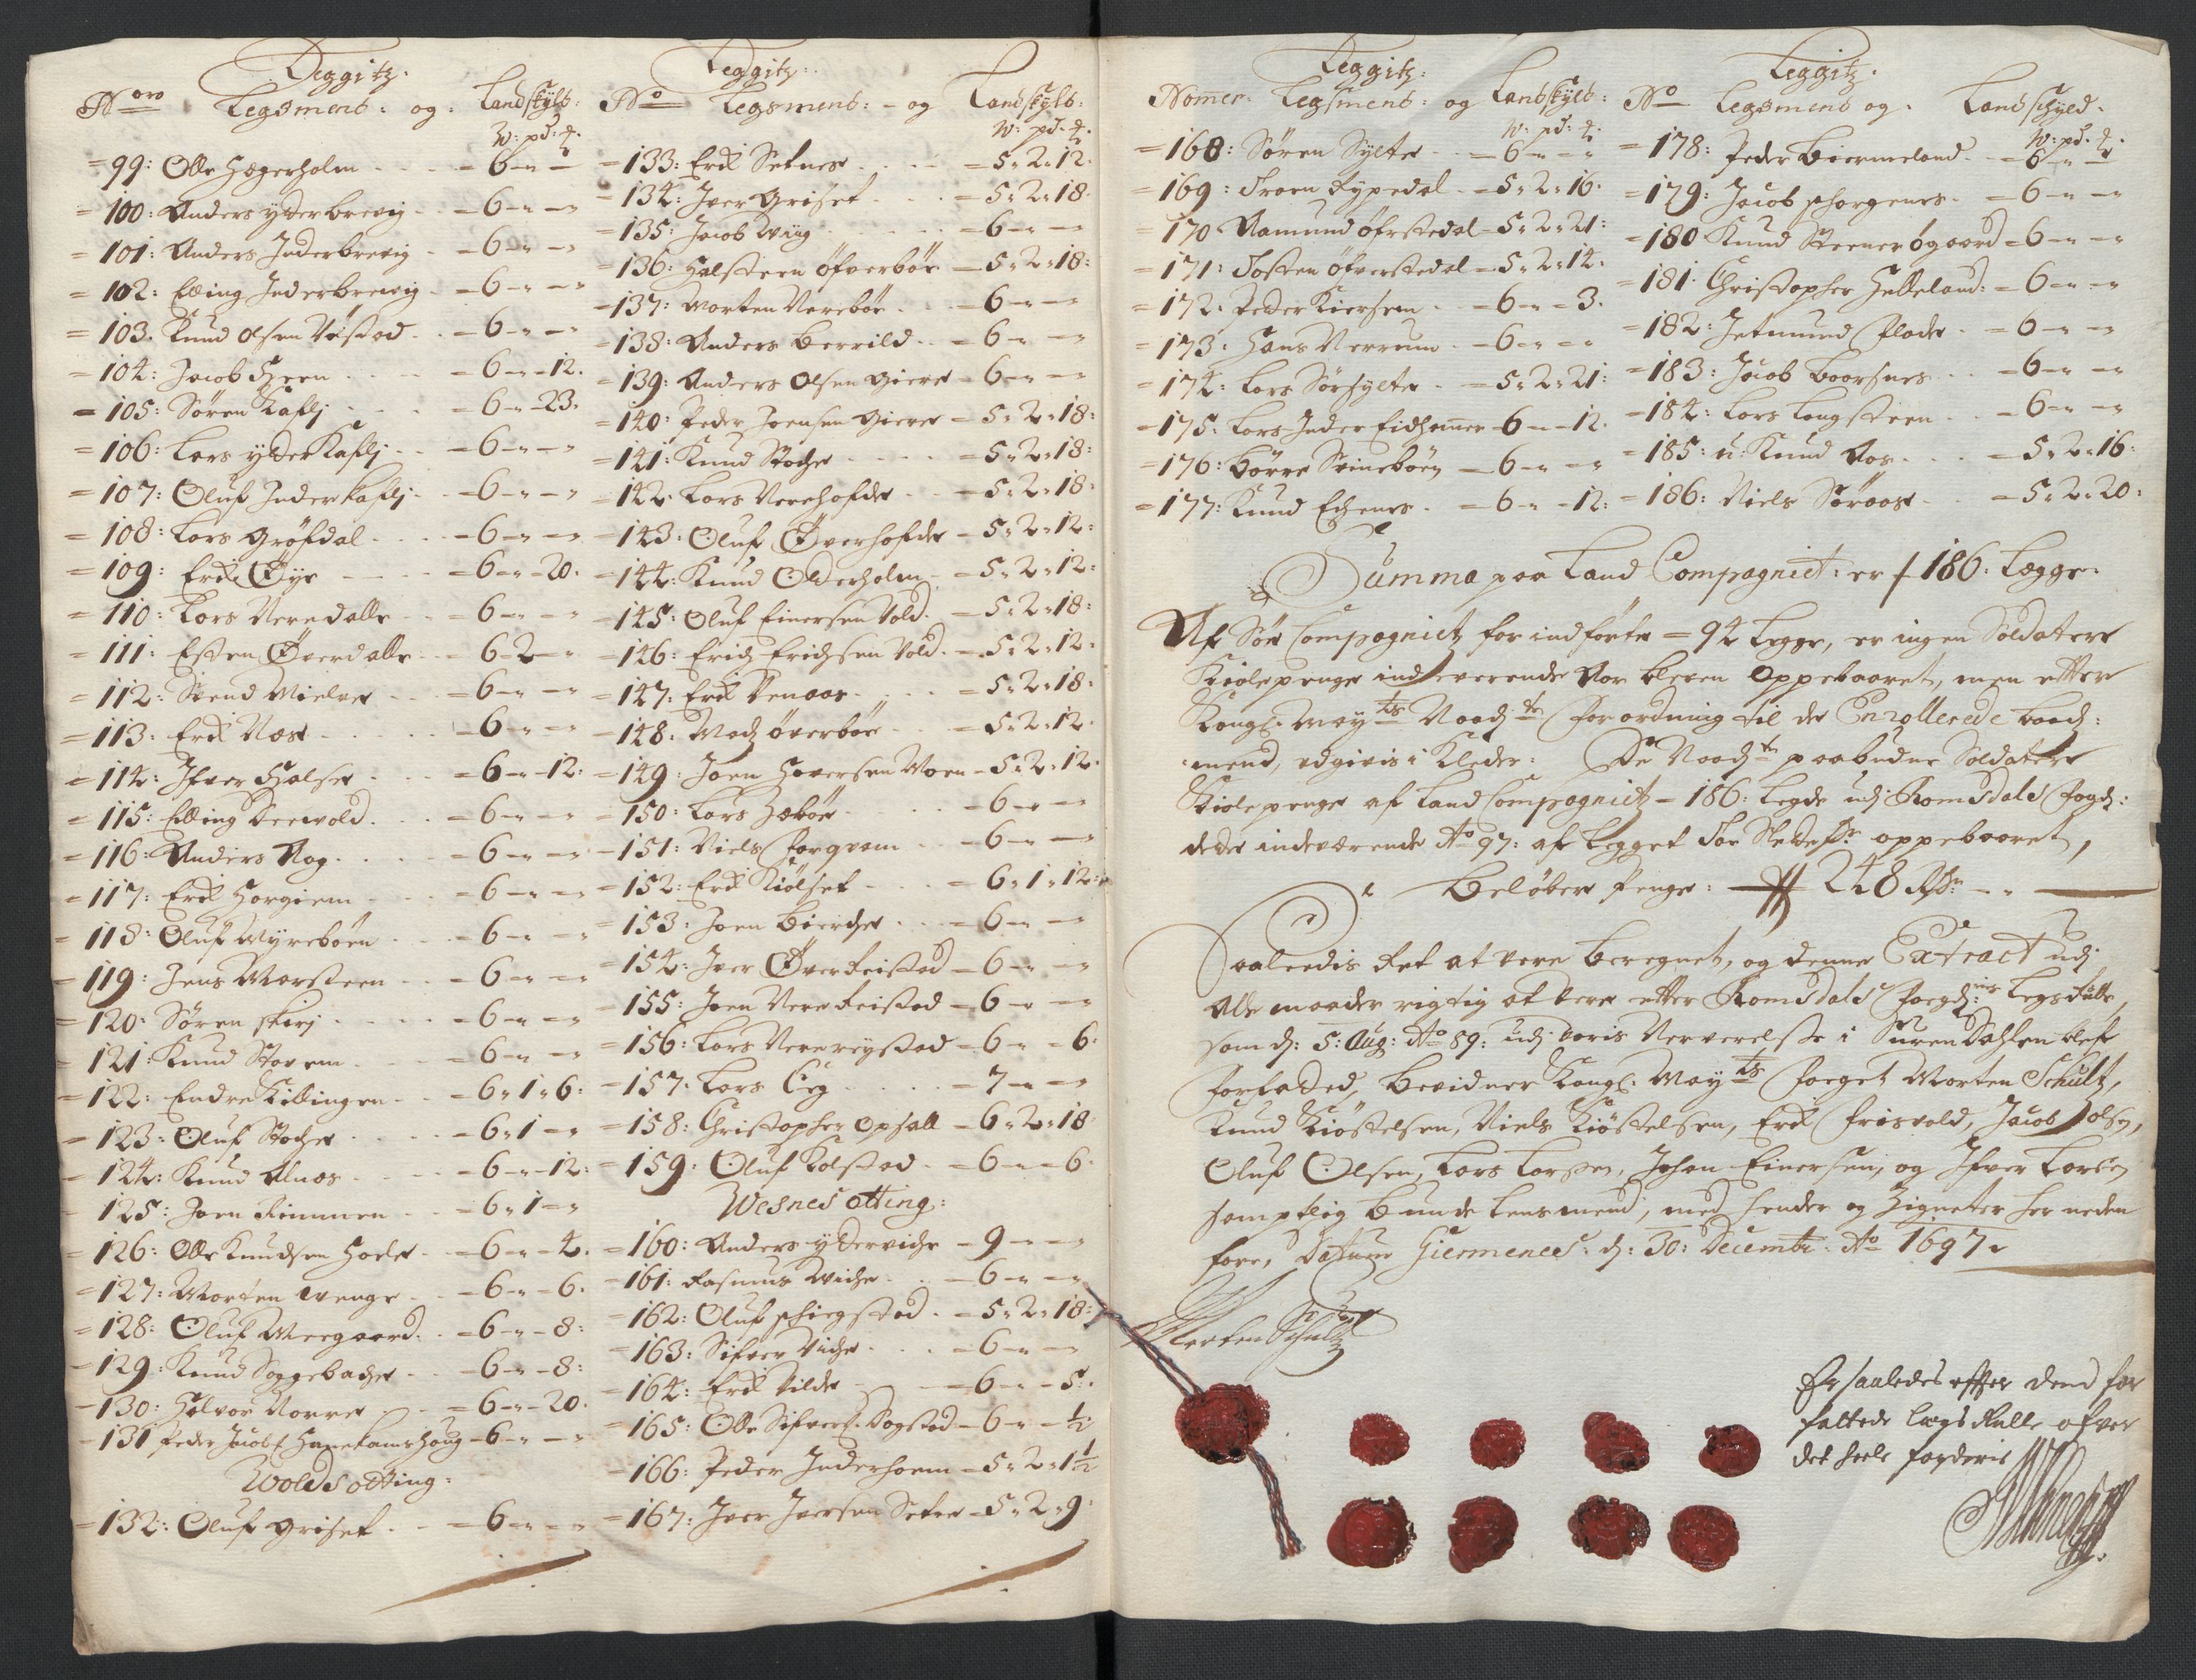 Leggitz.
Nomer Legsmend: og: Landskyld:
W: pd: ↊:
99: Olle Hægerholm - 6 - " -
100: Anders yderbrevig - 6 - " -
101: Anders Inderbrevig - 6 - " -
102: Elling Inderbrevig - 6 - " -
103. Knud Olsen - 6 - " -
104: Jacob Heen - 6 - " - 12.
105: Søren Kaflj - 6 - " - 23.
106: Lars yder Kaflj - 6 - " -
107: Oluf Inder Kaflj - 6 - " -
108: Lars Grøfdal - 6 - " -
109: Erik Øye - 6 - " - 20.
110: Lars Neredalle - 6 - " -
111: Esten Øverdalle - 6 - 2 - "
112: Svend Mielve - 6 - " -
113: Erik Næss - 6 - " -
114: Ifver Hialset - 6 - " - 12.
115: Elling Venvold - 6 - " -
116: Anders Rog - 6 - " -
117: Erik Horgiem - 6 - " -
118: Oluf Myrebøen - 6 - " -
119: Jens Marsteen - 6 - " -
120: Søren Skirj - 6 - " -
121: Knud Stovem - 6 - " -
122: Endre Killingen - 6 " 1 " 6:
123: Oluf Stocke - 6 " 1 - "
124: Knud Alnes - 6 - " - 12:
125: Joen Remmem - 6 " 1 - "
126: Olle Knudsen Hoele - 6 - " - 4.
127: Morten Venge - 6 - " - 6.
128: Oluf Moegaard - 6 - " - 8:
129: Knud Soggebache - 6 - " - 8:
130: Halvor Norre - 6 - " - 20.
131 Peder Jacobs: Hanekamshoug - 6 - " -
Wolds otting:
132: Oluf Griset - 6 - " -
Leggitz.
No Legsmend: - og Landskyld:
W: pd: ↊.
133: Erik Setnes - 5 " 2 " 12.
134: Iver Griset - 5 " 2 " 18.
135: Jacob Wiig - 6 - " -
136: Halsteen Øfverbøe - 5 " 2 " 18:
137: Morten Nerebøe - 6 - " -
138: Anders Berrild - 6 - " -
139: Anders Olsen Giere - 6 - " -
140: Peder Joensen Giere - 5 " 2 " 18:
141: Knud Stocke - 5 " 2 " 18:
142: Lars Nerehofde - 5 " 2 " 18:
143: Oluf Øverhofde - 5 " 2 " 12:
144: Knud Olderholm - 5 " 2 " 12:
145: Oluf Einersen Vold - 5 " 2 " 18:
146: Erich Erichsen Vold - 5 " 2 " 12:
147: Erik Venaas - 5 " 2 " 18:
148. Mads Øverbøe - 5 " 2 " 12.
149: Joen Haversen Moen - 5 " 2 " 12.
150: Lars Hæbøe - 6 - " -
151: Niels Forqvam - 6 - " -
152: Erik Kiølset - 6 " 1 " 12:
153: Joen Biercke - 6 - " -
154: Iver Øver Reistad - 6 - " -
155: Joen Nere Reistad - 6 - " -
156: Lars Nerereystad - 6 - " - 6.
157: Lars Lig - 7 - " -
158: Christopher Opsall - 6 " 2 " 18
159: Oluf Kolstad - 6 - " - 6.
Wesnes otting:
160: Anders yderviche - 9 - " -
161: Rasmus Wiche - 6 - " -
162: Oluf Schiegstad - 5 " 2 " 18:
163: Sifver Viche - 6 - " -
164: Erik Vilde - 6 - " - 5:
165: Olle Sifvers: Dogstad - 6 - " - ½:
166: Peder Inderhoem - 5 " 2 " 1½
167: Iver Iversen Setre - 5 " 2 " 9:
Leggitz:
Nomer: Legsmend: og Landskyld:
W: pd: ↊:
168: Søren Sylte - 6 - " -
169: Troen Rypedal - 5 " 2 " 16.
170 Aamund Øfrstedal - 5 " 2 " 21:
171: Tosten Øfverstedal - 5 " 2 " 14.
172: Peder Kiersem - 6 - " - 3.
173: Hans Verrum - 6 - " -
174: Lars Sørsylte - 5 " 2 " 21:
175. Lars Inder Eidhammer 6 - " - 12.
176: Børre Svinebøen - 6 - " -
177: Knud Echenes - 6 - " - 12:
Leggitz.
No Legsmend og. Landschyld.
W: pd. ↊.
178: Peder Biermeland - 6 - " -
179: Jacob Schorgenes - 6 - " -
180 Knud Steenerøgaard - 6 - " -
181. Christopher Helleland: - 6 - " -
182: Jetmund Flode - 6 - " -
183: Jacob Boosnes - 6 - " -
184: Lars Langsteen - 6 - " -
185: Knud Aas - 5 " 2 " 16:
186: Niels Søraas - 5 " 2 " 20:
Summa paa Land Compagniet: er 186. Legge.
Af Søe Compagnietz for indførte = 94 Legge, er ingen Soldaters
Kiolepenge indeverende Aar bleven oppebaaret, men efter
Kongl: Mayts Naadste forordning til de Enrollerede baads:
mend, udgivis i Kleder: De Naadst paabudne Soldaters
Kiole penge af Land Compagnietz - 186: Legde udj Romsdals Fogd:
dette indeværende Ao 97: af Legget oppebaaret,
Beløber Penge: 248 Rdr
Saaledis Ret at være beregnet, og denne Extract udj
Alle maader rigtig at være efter Romsdals Fogd: Legs Rulle,
som d: 5: Aug: Ao 89: udj voris Nerverelse i Surendahlen blef
forfatted, bevidner Kongl: Mayts Foeget Morten Schultz,
Knud Kiøstelsen, Niels Kiøstelsen, Erik Frisvold, Jacob Olsen,
Oluf Olsen, Lars Larsen, Johan Einersen, og Ifver Larsen
samptlig Bunde Lensmend, med hender og Zigneter her neden
fore, Datum Giermenes: d: 30: Decembr: Ao 1697.
Morten Schultz
Er saaledes effter dend for
fattede legs Rulle ofver
det heele fogderie